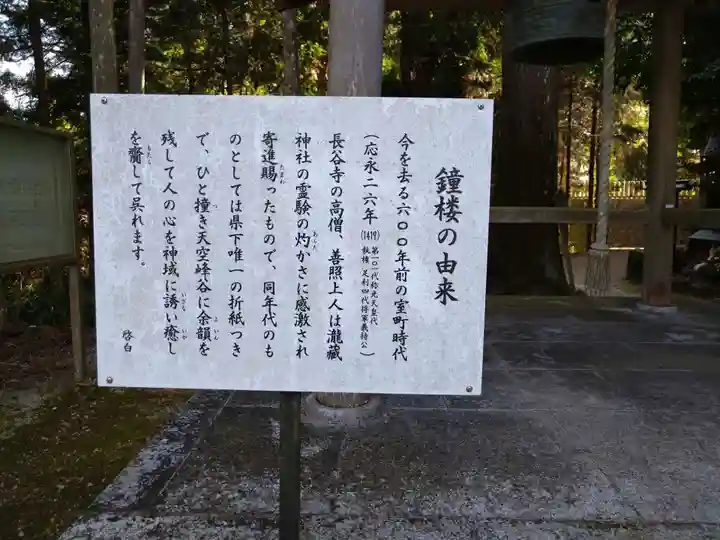 鐘楼の由来
今を去る六〇〇年前の室町時代
(応永二六年(1419)第一〇一代称光天皇代 執権 足利四代将軍義持公)
長谷寺の高僧、善照上人は瀧蔵
神社の霊験の灼かさに感激され
寄進賜ったもので、同年代のも
のとしては県下唯一の折紙つき
で、ひと撞き天空峰谷に余韻を
残して人の心を神域に誘い癒し
を齎して呉れます。
啓白